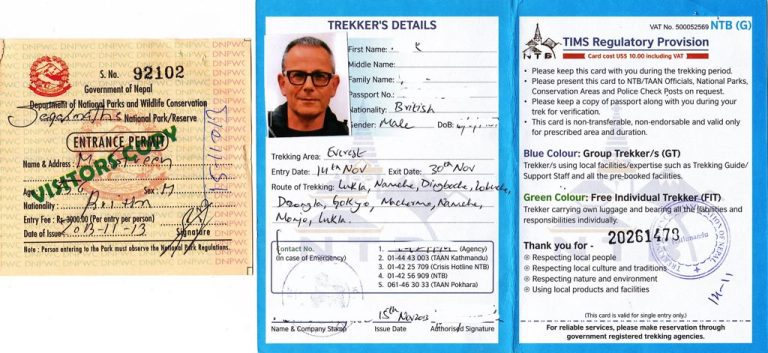 S. No. 92102
Government of Nepal
Department of National Parks and Wildlife Conservation
National Park/Reserve
ENTRANCE PERMIT
VISITORS COPY
Name & Address :
Sex : M
Nationality :
Entry Fee : Rs. 3000.00 (Per entry per person)
Date of Issue : 2013-11-13
Signature
Note : Person entering to the Park must observe the National Park Regulations.
TREKKER'S DETAILS
First Name:
Middle Name:
Family Name:
Passport No.
Nationality: British
Gender: Male DoB:
Trekking Area: Everest
Entry Date: 14th Nov Exit Date: 30th Nov
Route of Trekking: Lukla, Namche, Dingboche, Lobuche,
Dzongla, Gokyo, Machermo, Namche,
Monjo, Lukla.
Contact No. 1. (Agency)
(in case of Emergency) 2. 01-44 43 003 (TAAN Kathmandu)
3. 01-42 25 709 (Crisis Hotline NTB)
4. 01-42 56 909 (NTB)
5. 061-46 30 33 (TAAN Pokhara)
15th Nov 2013
Name & Company Stamp Issue Date Authorised Signature
VAT No. 500052569 NTB (G)
NTB
TIMS Regulatory Provision
Card cost US$ 10.00 including VAT
• Please keep this card with you during the trekking period.
• Please present this card to NTB/TAAN Officials, National Parks,
Conservation Areas and Police Check Posts on request.
• Please keep a copy of passport along with you during your
trek for verification.
• This card is non-transferable, non-endorsable and valid only
for prescribed area and duration.
Blue Colour: Group Trekker/s (GT)
Trekker/s using local facilities/expertise such as Trekking Guide/
Support Staff and all the pre-booked facilities.
Green Colour: Free Individual Trekker (FIT)
Trekker carrying own luggage and bearing all the liabilities and
responsibilities individually.
Thank you for - 20261479
Respecting local people
Respecting local culture and traditions
Respecting nature and environment
Using local products and facilities
14-11
(This card is valid for single entry only.)
For reliable services, please make reservation through
government registered trekking agencies.